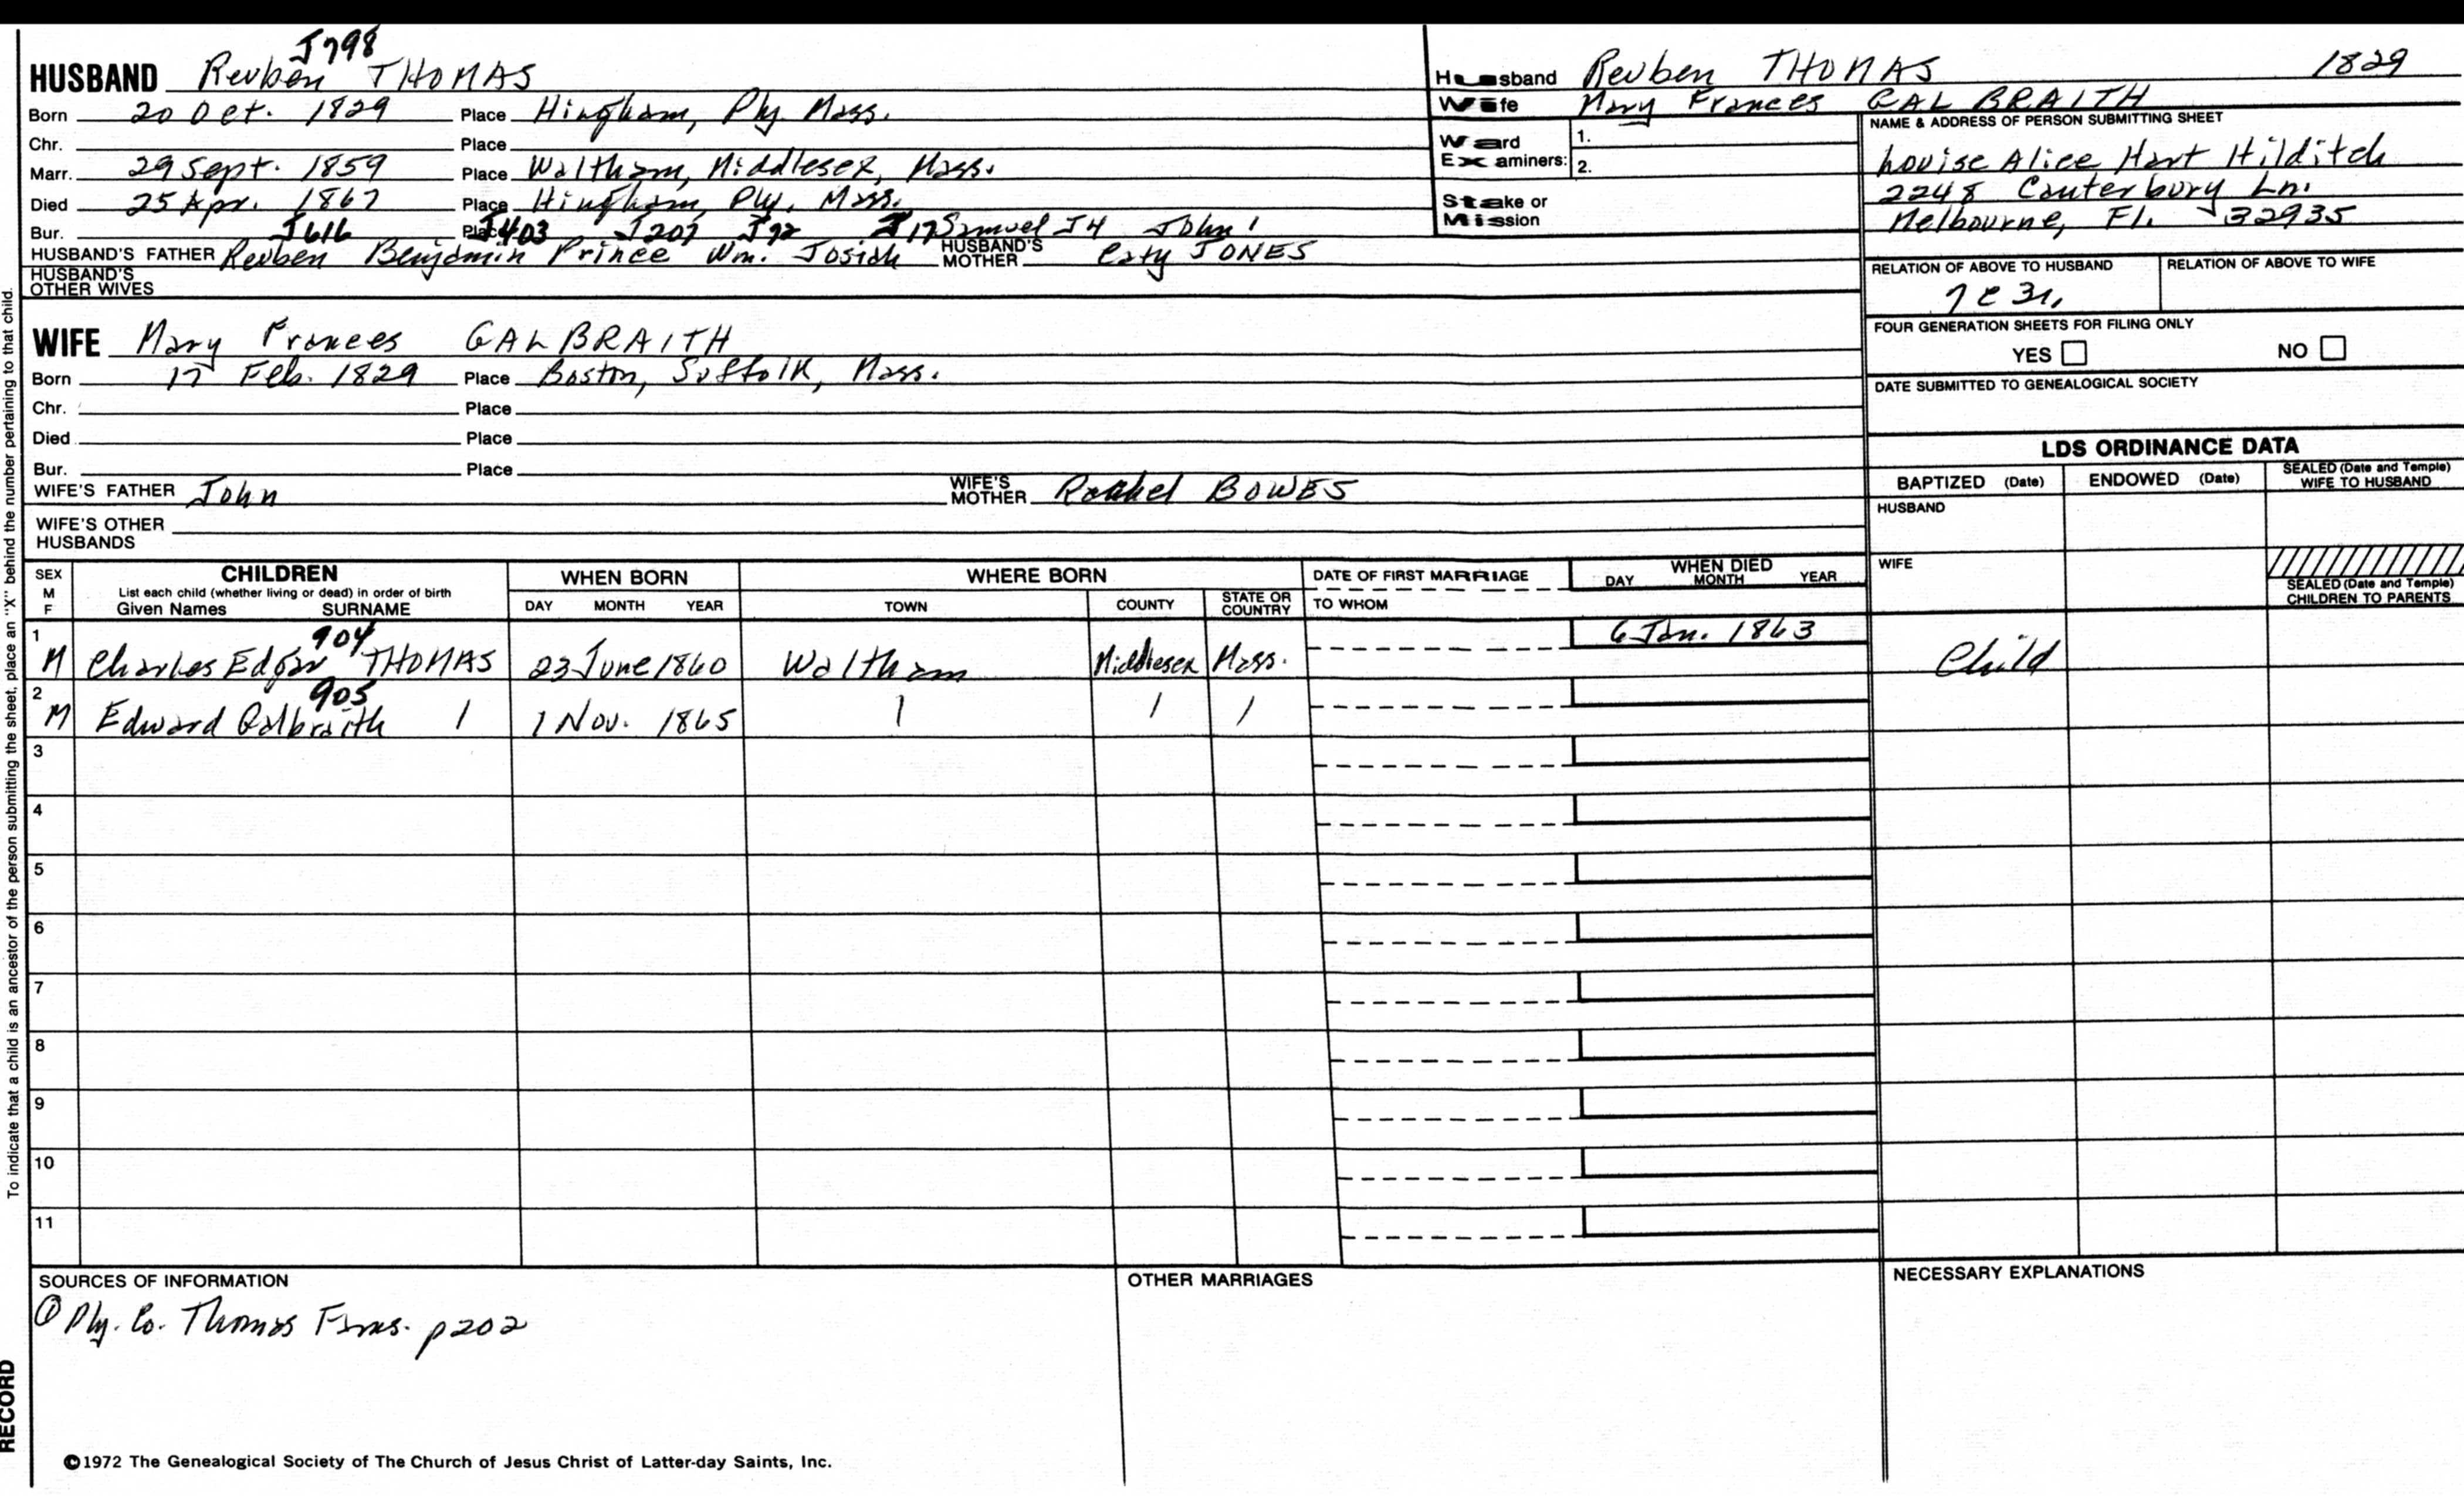 J798
HUSBAND Reuben THOMAS
Born 20 Oct. 1829 Place Hingham, Ply. Mass.
Chr. Place
Marr. 29 Sept. 1859 Place Waltham, Middlesex, Mass.
Died 25 Apr. 1867 Place Hingham, Ply. Mass.
Bur. J616 Place J403 J207 J72 J17 Samuel J4 John 1
HUSBAND'S FATHER Reuben Benjamin Prince Wm. Josiah HUSBAND'S MOTHER Caty JONES
HUSBAND'S OTHER WIVES
WIFE Mary Frances GALBRAITH
Born 17 Feb. 1829 Place Boston, Suffolk, Mass.
Chr. Place
Died Place
Bur. Place
WIFE'S FATHER John WIFE'S MOTHER Rachel BOWES
WIFE'S OTHER HUSBANDS
Husband Reuben THOMAS 1829
Wife Mary Frances GALBRAITH
Ward Examiners: 1.
2.
Stake or Mission
NAME & ADDRESS OF PERSON SUBMITTING SHEET
Louise Alice Hart Hilditch
2248 Canterbury Ln.
Melbourne, Fl. 32935
RELATION OF ABOVE TO HUSBAND RELATION OF ABOVE TO WIFE
7c3r.
FOUR GENERATION SHEETS FOR FILING ONLY
YES NO
DATE SUBMITTED TO GENEALOGICAL SOCIETY
LDS ORDINANCE DATA
BAPTIZED (Date) ENDOWED (Date) SEALED (Date and Temple) WIFE TO HUSBAND
HUSBAND
WIFE
SEALED (Date and Temple) CHILDREN TO PARENTS
SEX M F CHILDREN WHEN BORN WHERE BORN DATE OF FIRST MARRIAGE WHEN DIED
List each child (whether living or dead) in order of birth
Given Names SURNAME DAY MONTH YEAR TOWN COUNTY STATE OR COUNTRY TO WHOM DAY MONTH YEAR
1 904 6 Jan. 1863
M Charles Edgar THOMAS 23 June 1860 Waltham Middlesex Mass. Child
2 905
M Edward Galbraith / 1 Nov. 1865 / / /
3
4
5
6
7
8
9
10
11
SOURCES OF INFORMATION
① Ply. Co. Thomas Fams. p202
OTHER MARRIAGES
NECESSARY EXPLANATIONS
©1972 The Genealogical Society of The Church of Jesus Christ of Latter-day Saints, Inc.
To indicate that a child is an ancestor of the person submitting the sheet, place an "X" behind the number pertaining to that child.
RECORD